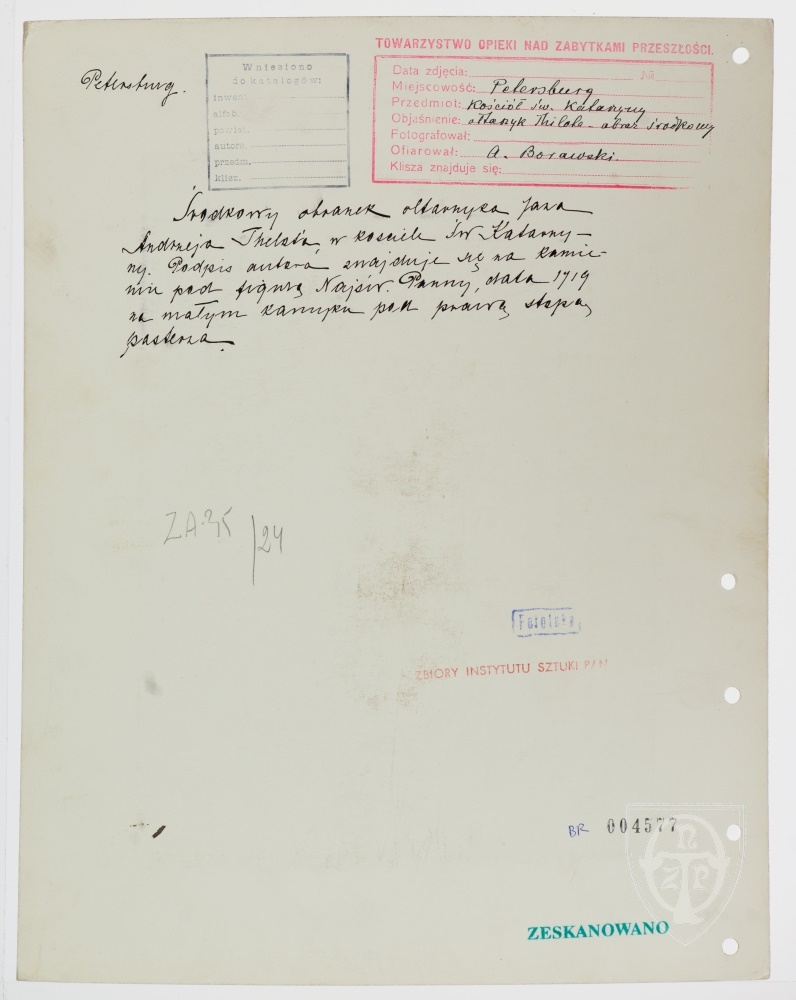 Petersburg.
Wniesiono
do katalogów:
inwent.
alfab.
powiat.
autora.
przedm.
klisz.
TOWARZYSTWO OPIEKI NAD ZABYTKAMI PRZESZŁOŚCI.
Data zdjęcia: Nr.
Miejscowość: Petersburg
Przedmiot: Kościół św. Katarzyny
Objaśnienie: ołtarzyk Thilota - obraz środkowy
Fotografował:
Ofiarował: A. Borawski.
Klisza znajduje się:
Środkowy obrazek ołtarzyka Jana
Andrzeja Thelota, w kościele Św. Katarzy-
ny. Podpis autora, znajduje się na kamie-
niu pod figurą Najśw. Panny, data 1719
na małym kamyku pod prawą stopą
pasterza.
ZA.35/24
ZBIORY INSTYTUTU SZTUKI PAN
BR 004577
ZESKANOWANO